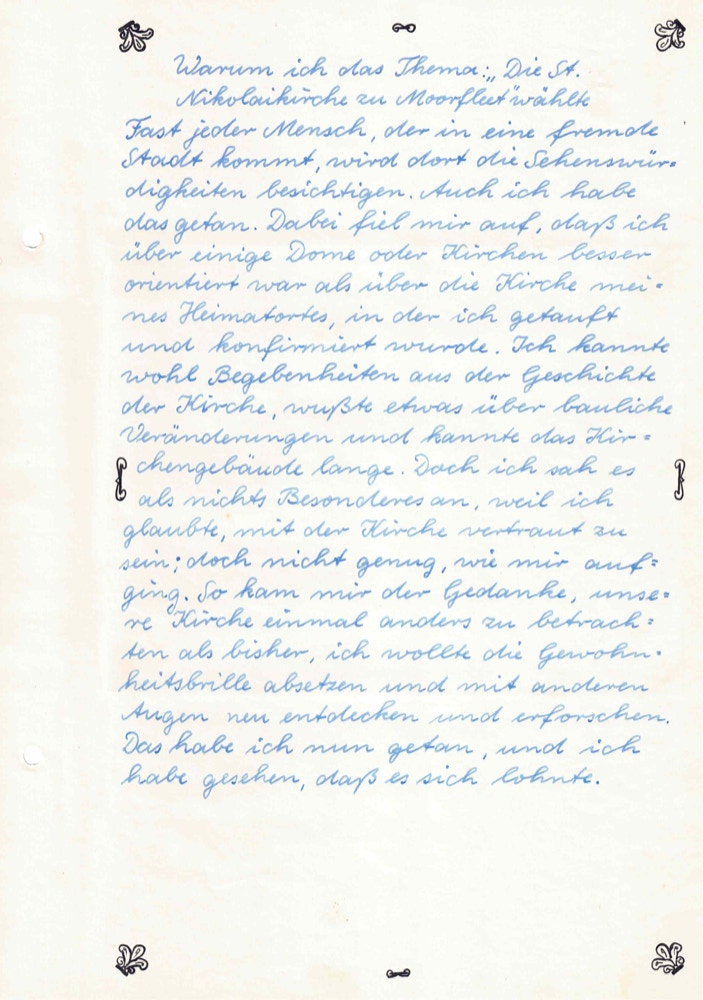 Warum ich das Thema: „Die St.
Nikolaikirche zu Moorfleet" wählte
Fast jeder Mensch, der in eine fremde
Stadt kommt, wird dort die Sehenswür=
digkeiten besichtigen. Auch ich habe
das getan. Dabei fiel mir auf, daß ich
über einige Dome oder Kirchen besser
orientiert war als über die Kirche mei=
nes Heimatortes, in der ich getauft
und konfirmiert wurde. Ich kannte
wohl Begebenheiten aus der Geschichte
der Kirche, wußte etwas über bauliche
Veränderungen und kannte das Kir=
chengebäude lange. Doch ich sah es
als nichts Besonderes an, weil ich
glaubte, mit der Kirche vertraut zu
sein; doch nicht genug, wie mir auf=
ging. So kam mir der Gedanke, unse=
re Kirche einmal anders zu betrach=
ten als bisher, ich wollte die Gewohn=
heitsbrille absetzen und mit anderen
Augen neu entdecken und erforschen.
Das habe ich nun getan, und ich
habe gesehen, daß es sich lohnte.